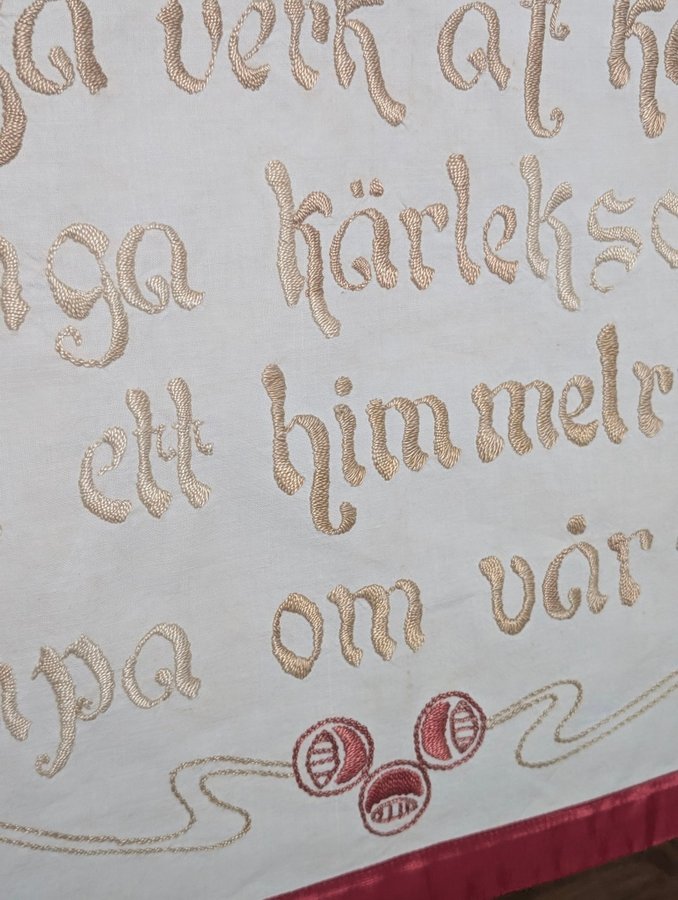 ga verk af k
nga kärlekso
ett himmelr
pa om vår